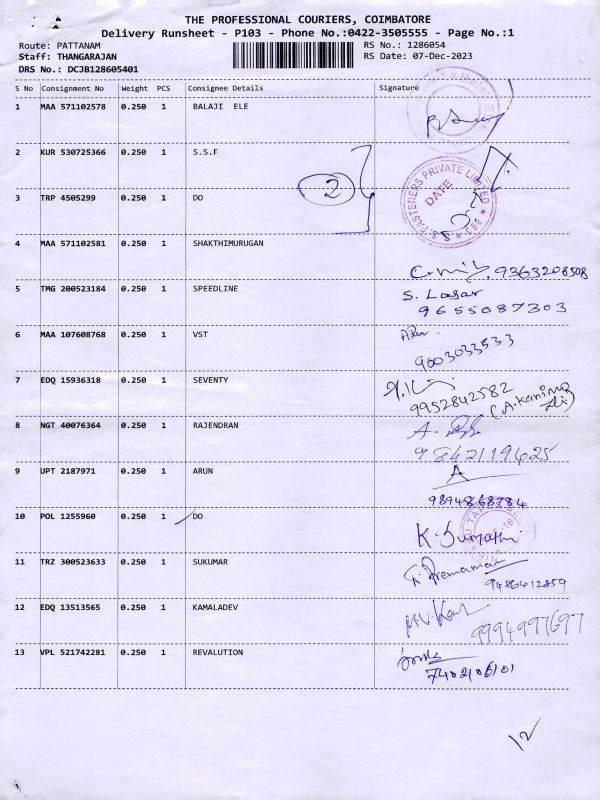 THE PROFESSIONAL COURIERS, COIMBATORE
Delivery Runsheet - P103 - Phone No.:0422-3505555 - Page No.:1
Route: PATTANAM
RS No.: 1286054
Staff: THANGARAJAN
RS Date: 07-Dec-2023
DRS No.: DCJB128605401
S No Consignment No Weight PCS Consignee Details Signature
1 MAA 571102578 0.250 1 BALAJI ELE
2 KUR 530725366 0.250 1 S.S.F
2
S.S. FASTENERS PRIVATE LIMITED
DATE
CBE
3 TRP 4505299 0.250 1 DO
4 MAA 571102581 0.250 1 SHAKTHIMURUGAN
9363208508
5 TMG 200523184 0.250 1 SPEEDLINE
S. Lasar
9655087303
6 MAA 107608768 0.250 1 VST
9003033533
7 EDQ 15936318 0.250 1 SEVENTY
9952842582
8 NGT 40076364 0.250 1 RAJENDRAN
9842119625
9 UPT 2187971 0.250 1 ARUN
A
9894868784
10 POL 1255960 0.250 1 DO
K. Sumathi
11 TRZ 300523633 0.250 1 SUKUMAR
9486412859
12 EDQ 13513565 0.250 1 KAMALADEV
9994997697
13 VPL 521742281 0.250 1 REVALUTION
7402106101
12